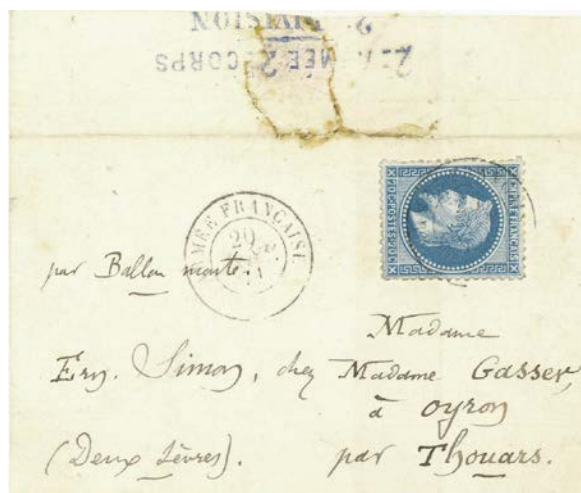 CORPS
DIVISION
ARMÉE FRANÇAISE
EMPIRE FRANÇAIS
par Ballon monté.
Madame
Ern. Simon, chez Madame Gasser,
à Oyron
(Deux Sèvres). par Thouars.